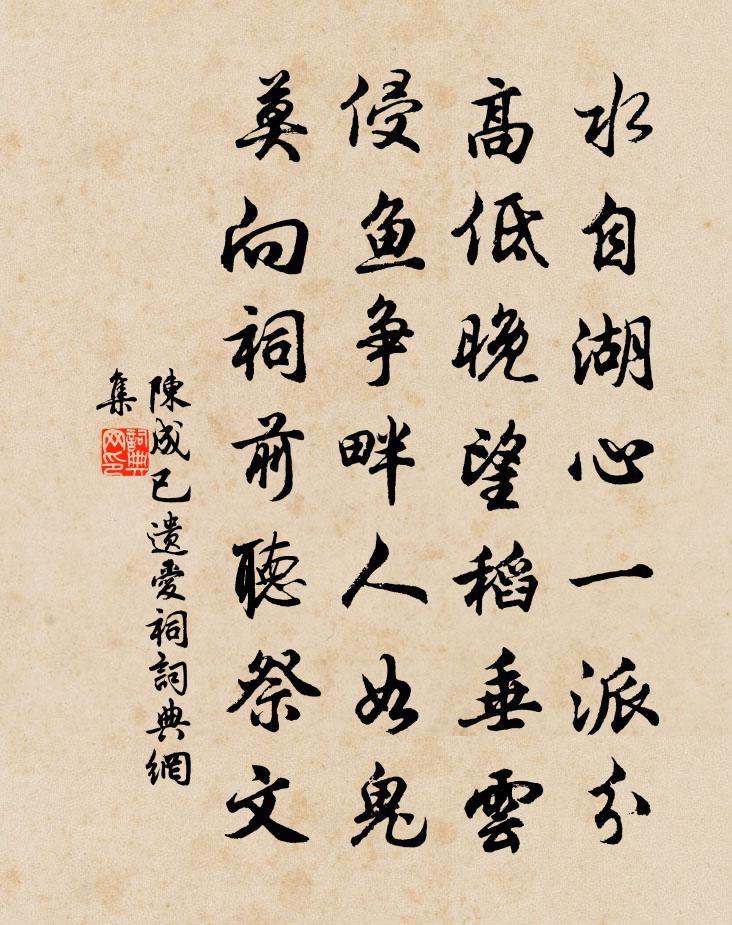 水自湖心一派分
高低晚望稻垂雲
侵魚争畔人如鬼
莫向祠前聽祭文
陳成已遺愛祠詞典網
集
詞典
网印